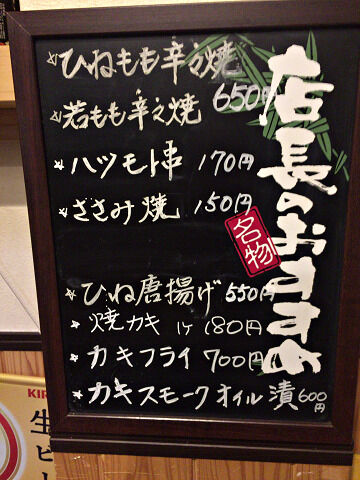 店長のおすすめ
名物
ひねもも辛々焼
若もも辛々焼 650円
ハツモト串 170円
ささみ焼 150円
ひね唐揚げ 550円
焼カキ 1ケ 180円
カキフライ 700円
カキスモークオイル漬 600円
KIR
生ビ